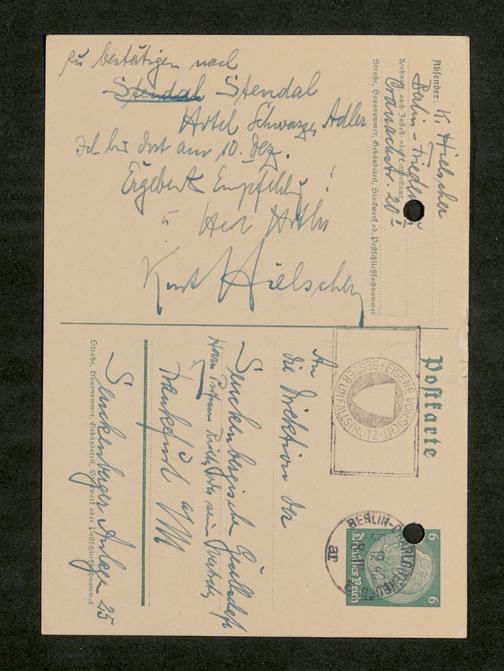 zu bestätigen nach
Stendal Stendal
Hotel Schwarzer Adler
Ich bin dort am 10. Dez.
Ergebenste Empfehlung !
u Heil Hitler
Kurt Hielscher
Absender: K. Hielscher
Berlin-Frieden
Wohnort, auch Zustell- oder Leitpostamt
Ordnachstr. 20 I
Straße, Hausnummer, Gebäudeteil, Stockwerk od. Postschließfachnummer
Postkarte
EIGENE VORSICHT - BESTER UNFALLSCHUTZ
BERLIN-CHARLOTTENBURG
6 6
Deutsches Reich
An
die Direktion der
Senckenbergische Gesellschaft
Frankfurt a/M
Senckenberger Anlage 25
Straße, Hausnummer, Gebäudeteil, Stockwerk oder Postschließfachnummer